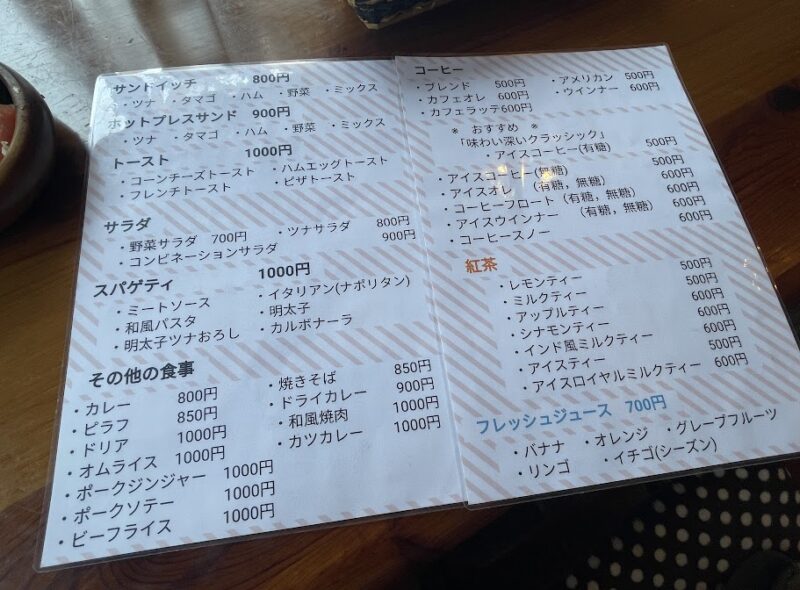 サンドイッチ 800円
・ツナ ・タマゴ ・ハム ・野菜 ・ミックス
ホットプレスサンド 900円
・ツナ ・タマゴ ・ハム ・野菜 ・ミックス
トースト 1000円
・コーンチーズトースト ・ハムエッグトースト
・フレンチトースト ・ピザトースト
サラダ
・野菜サラダ 700円 ・ツナサラダ 800円
・コンビネーションサラダ 900円
スパゲティ 1000円
・ミートソース ・イタリアン(ナポリタン)
・和風パスタ ・明太子
・明太子ツナおろし ・カルボナーラ
その他の食事
・カレー 800円 ・焼きそば 850円
・ピラフ 850円 ・ドライカレー 900円
・ドリア 1000円 ・和風焼肉 1000円
・オムライス 1000円 ・カツカレー 1000円
・ポークジンジャー 1000円
・ポークソテー 1000円
・ビーフライス 1000円
コーヒー
・ブレンド 500円 ・アメリカン 500円
・カフェオレ 600円 ・ウインナー 600円
・カフェラッテ600円
* おすすめ *
「味わい深いクラッシック」
・アイスコーヒー(有糖) 500円
・アイスコーヒー(無糖) 500円
・アイスオレ (有糖，無糖) 600円
・コーヒーフロート (有糖，無糖) 600円
・アイスウインナー (有糖，無糖) 600円
・コーヒースノー 600円
紅茶
・レモンティー 500円
・ミルクティー 500円
・アップルティー 600円
・シナモンティー 600円
・インド風ミルクティー 600円
・アイスティー 500円
・アイスロイヤルミルクティー 600円
フレッシュジュース 700円
・バナナ ・オレンジ ・グレープフルーツ
・リンゴ ・イチゴ(シーズン)